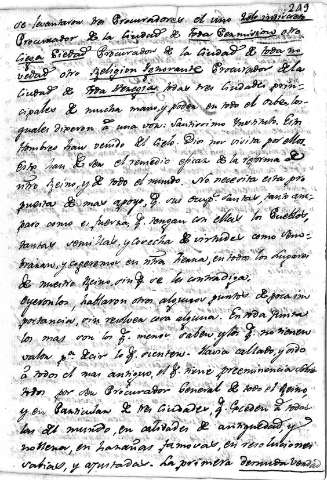 249
se levantaron tres Procuradores el uno
Procurador de la Ciudad de toda Permision, otro
Ciega Piedad Procurador de la Ciudad de toda no
vedad otro Religion Ignorante Procurador de la
Ciudad de toda todas tres Ciudades prin-
cipales de mucha mano, y poder en todo el Reyno, los
quales dijeron à una voz: Santissimo Instituto. Estos
hombres han venido del Cielo. Dios nos visita por ellos
Estos han de ser el remedio eficaz de la reforma de
nřo Reyno, y de todo el mundo. No necesita esta pro
puesta de mas apoyo, q.e sus ocupp.s santas, tanto am-
paro como es fuerza, q.e tengan con ellos los Pueblos,
tantas semillas, y cosecha de virtudes como
braran, y cogeremos en nřa tierra, en todos los Lugares
de nuestro Reyno, sin q.e se les contradiga.
Oyeronlos hablaron otros, algunos puntos de poca im
portancia, sin resolver cosa alguna. En toda Junta
los mas son los q.e menos saben, y los q.e no tienen
valor p.a decir lo q.e sienten. Havia callado, y oido
à todos el mas antiguo, el q.e tiene preeminencia sobre
todos por ser Procurador General de todo el Reyno,
y en Particular de tres Ciudades, q.e exceden à todas
las del mundo, en calidades de antiguedad, y
nobleza, en hazañas famosas, en resoluciones
sabias, y ajustadas. La primera desnuda verdad